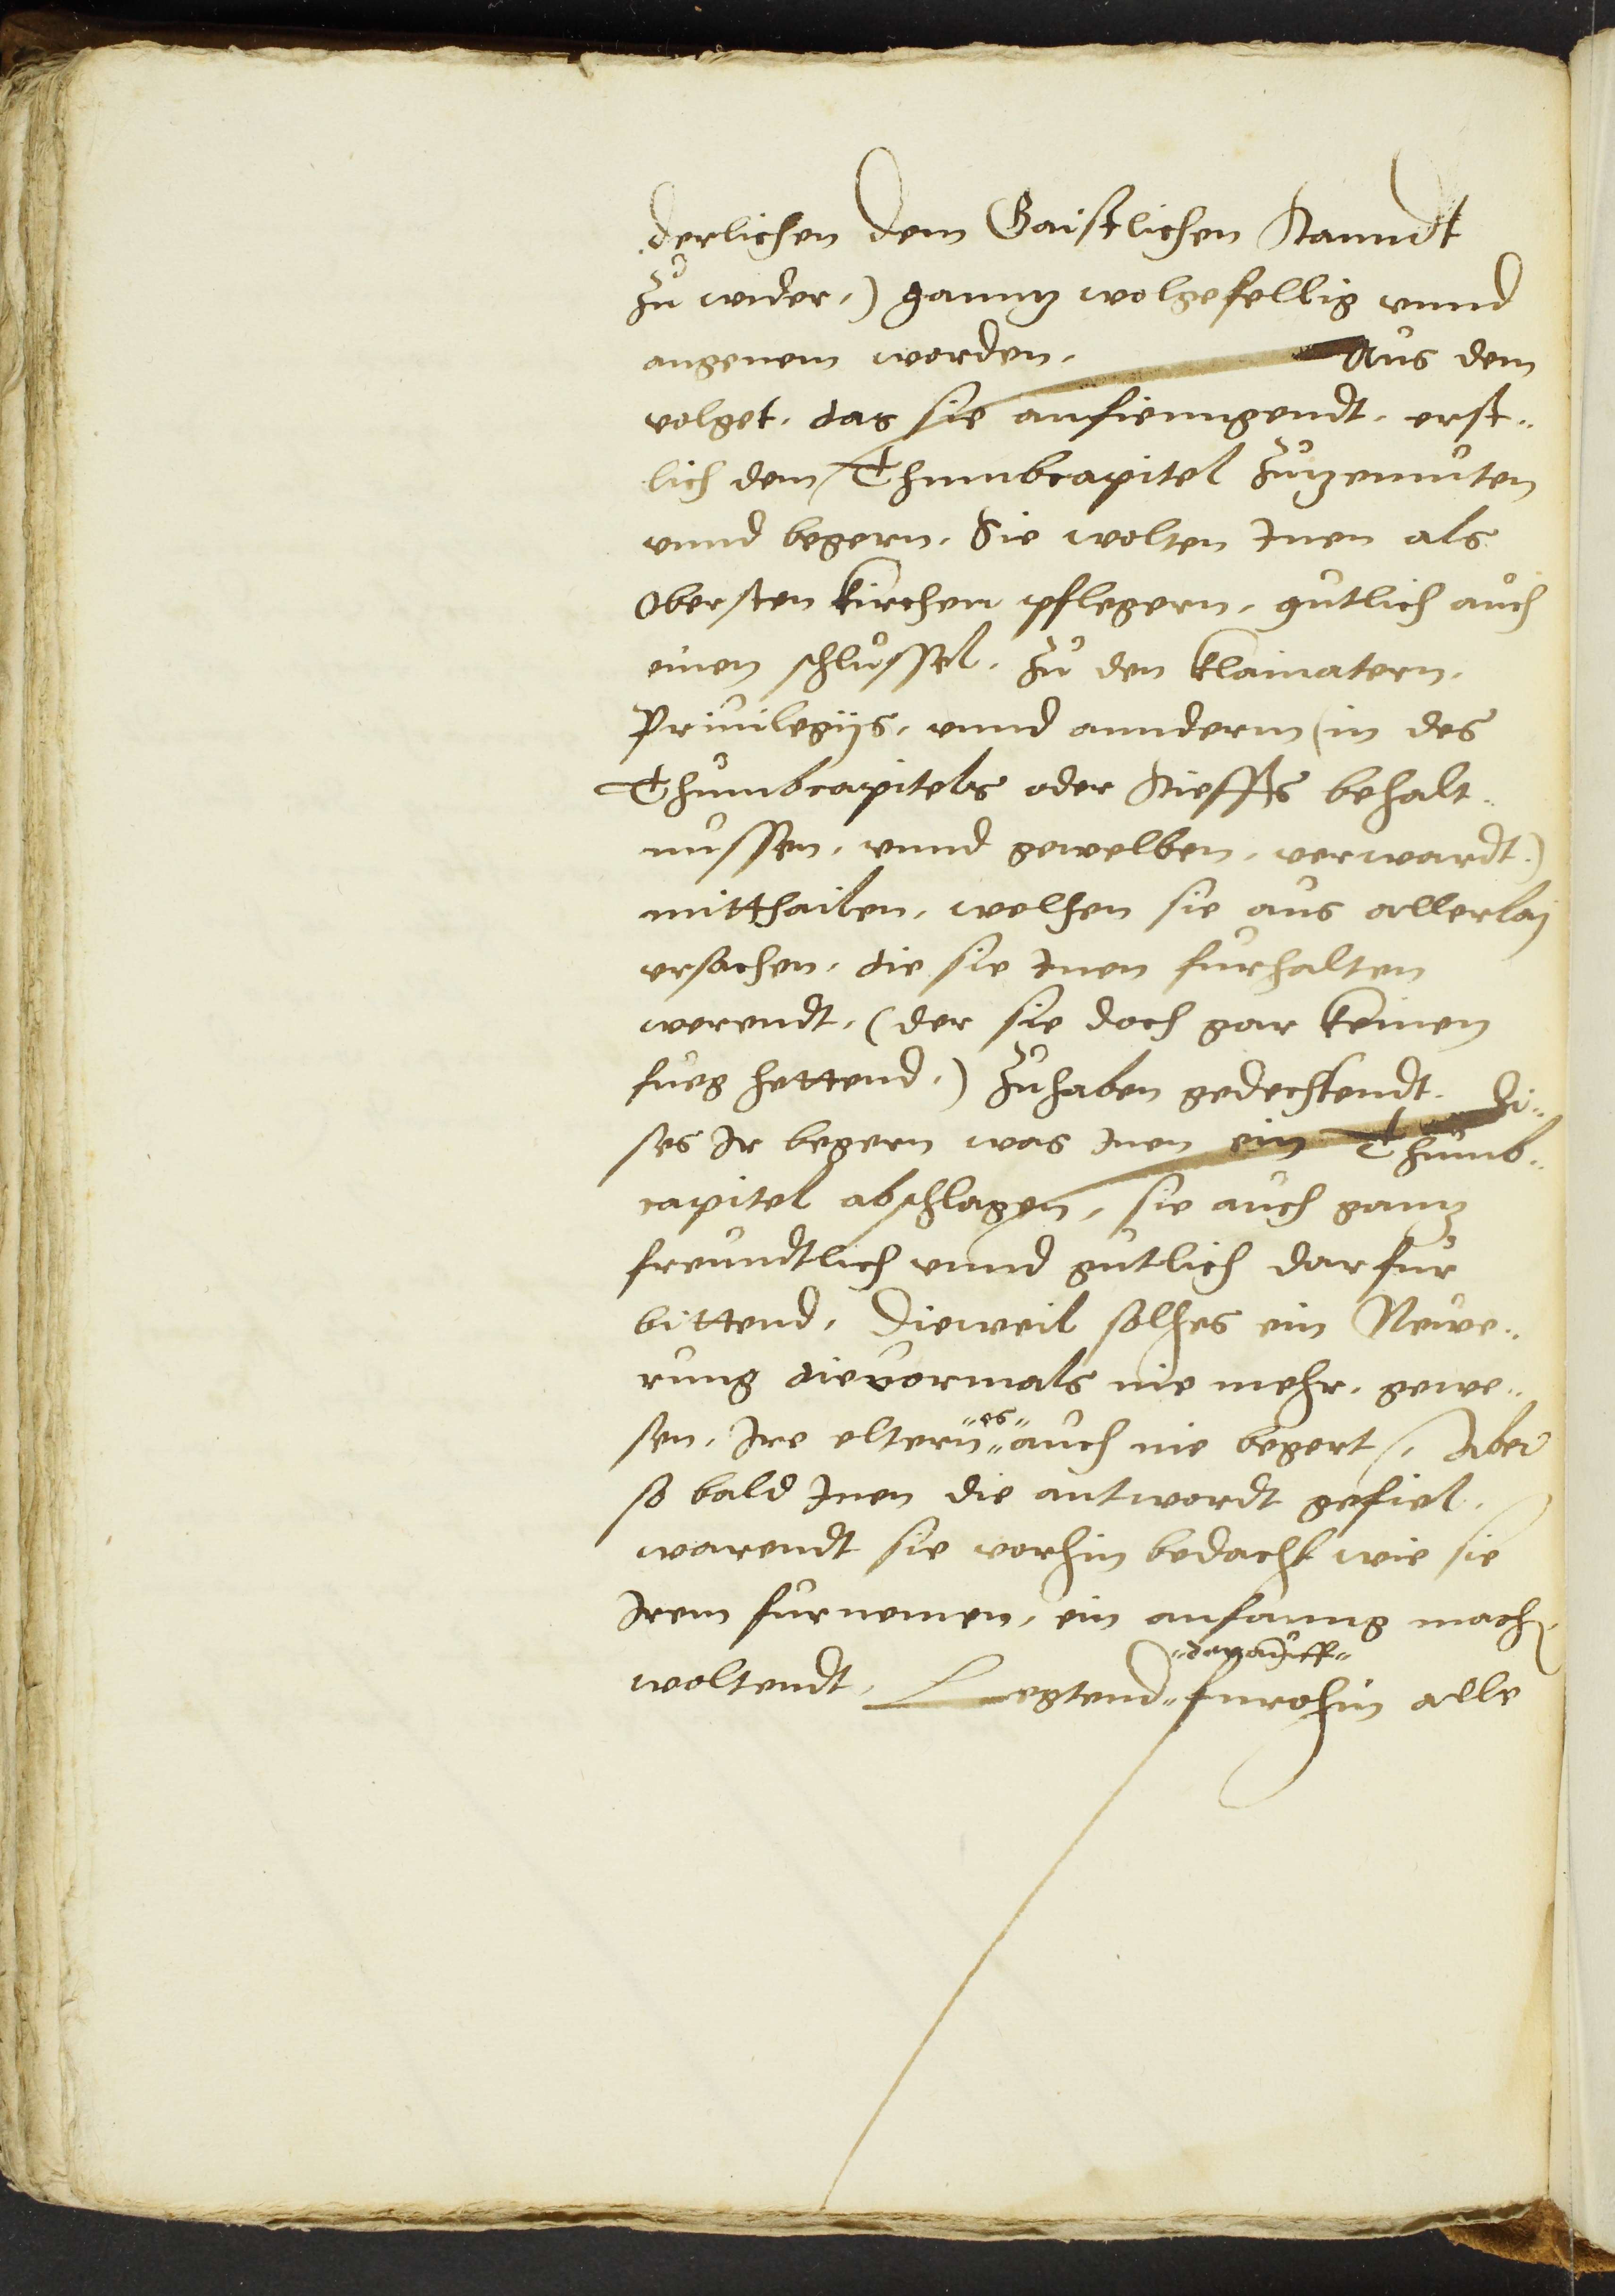 derlichen dem Gaistlichen Stanndt
zu wider,) ganntz wolgefellig vnnd
angenem worden, Aus dem
volget, das sie anfienngendt, erst¬
lich dem Thumbcapitel zuzemuten
vnnd begern, Sie wolten Inen als
Obersten kirchen pflegern, gutlich auch
einen schlussel, zu den klainatern,
Priuilegijs, vnnd annderm (in des
Thumbcapitels oder Stieffts behalt¬
nussen, vnnd gewelben, verwardt)
mitthailen, welhen sie aus allerlaj
vrsachen, die sie Inen furhalten
werendt, (der sie doch gar keinen
fueg hettend,) zuhaben gedechtendt. Di¬
ses Ir begern was Inen ein Thumb¬
capitel abschlagen, sie auch gantz
freundtlich vnnd gutlich darfur
bittend, Dieweil solhes ein Newe¬
rung die vormals nie mehr, gewe¬
sen, Ire eltern "es" auch nie begert, Aber
so bald Inen die antwordt gefiel,
warendt sie vorhin bedacht wie sie
Irem furnemen, ein anfanng mach
woltendt, Legtend "darauff" furohin alle